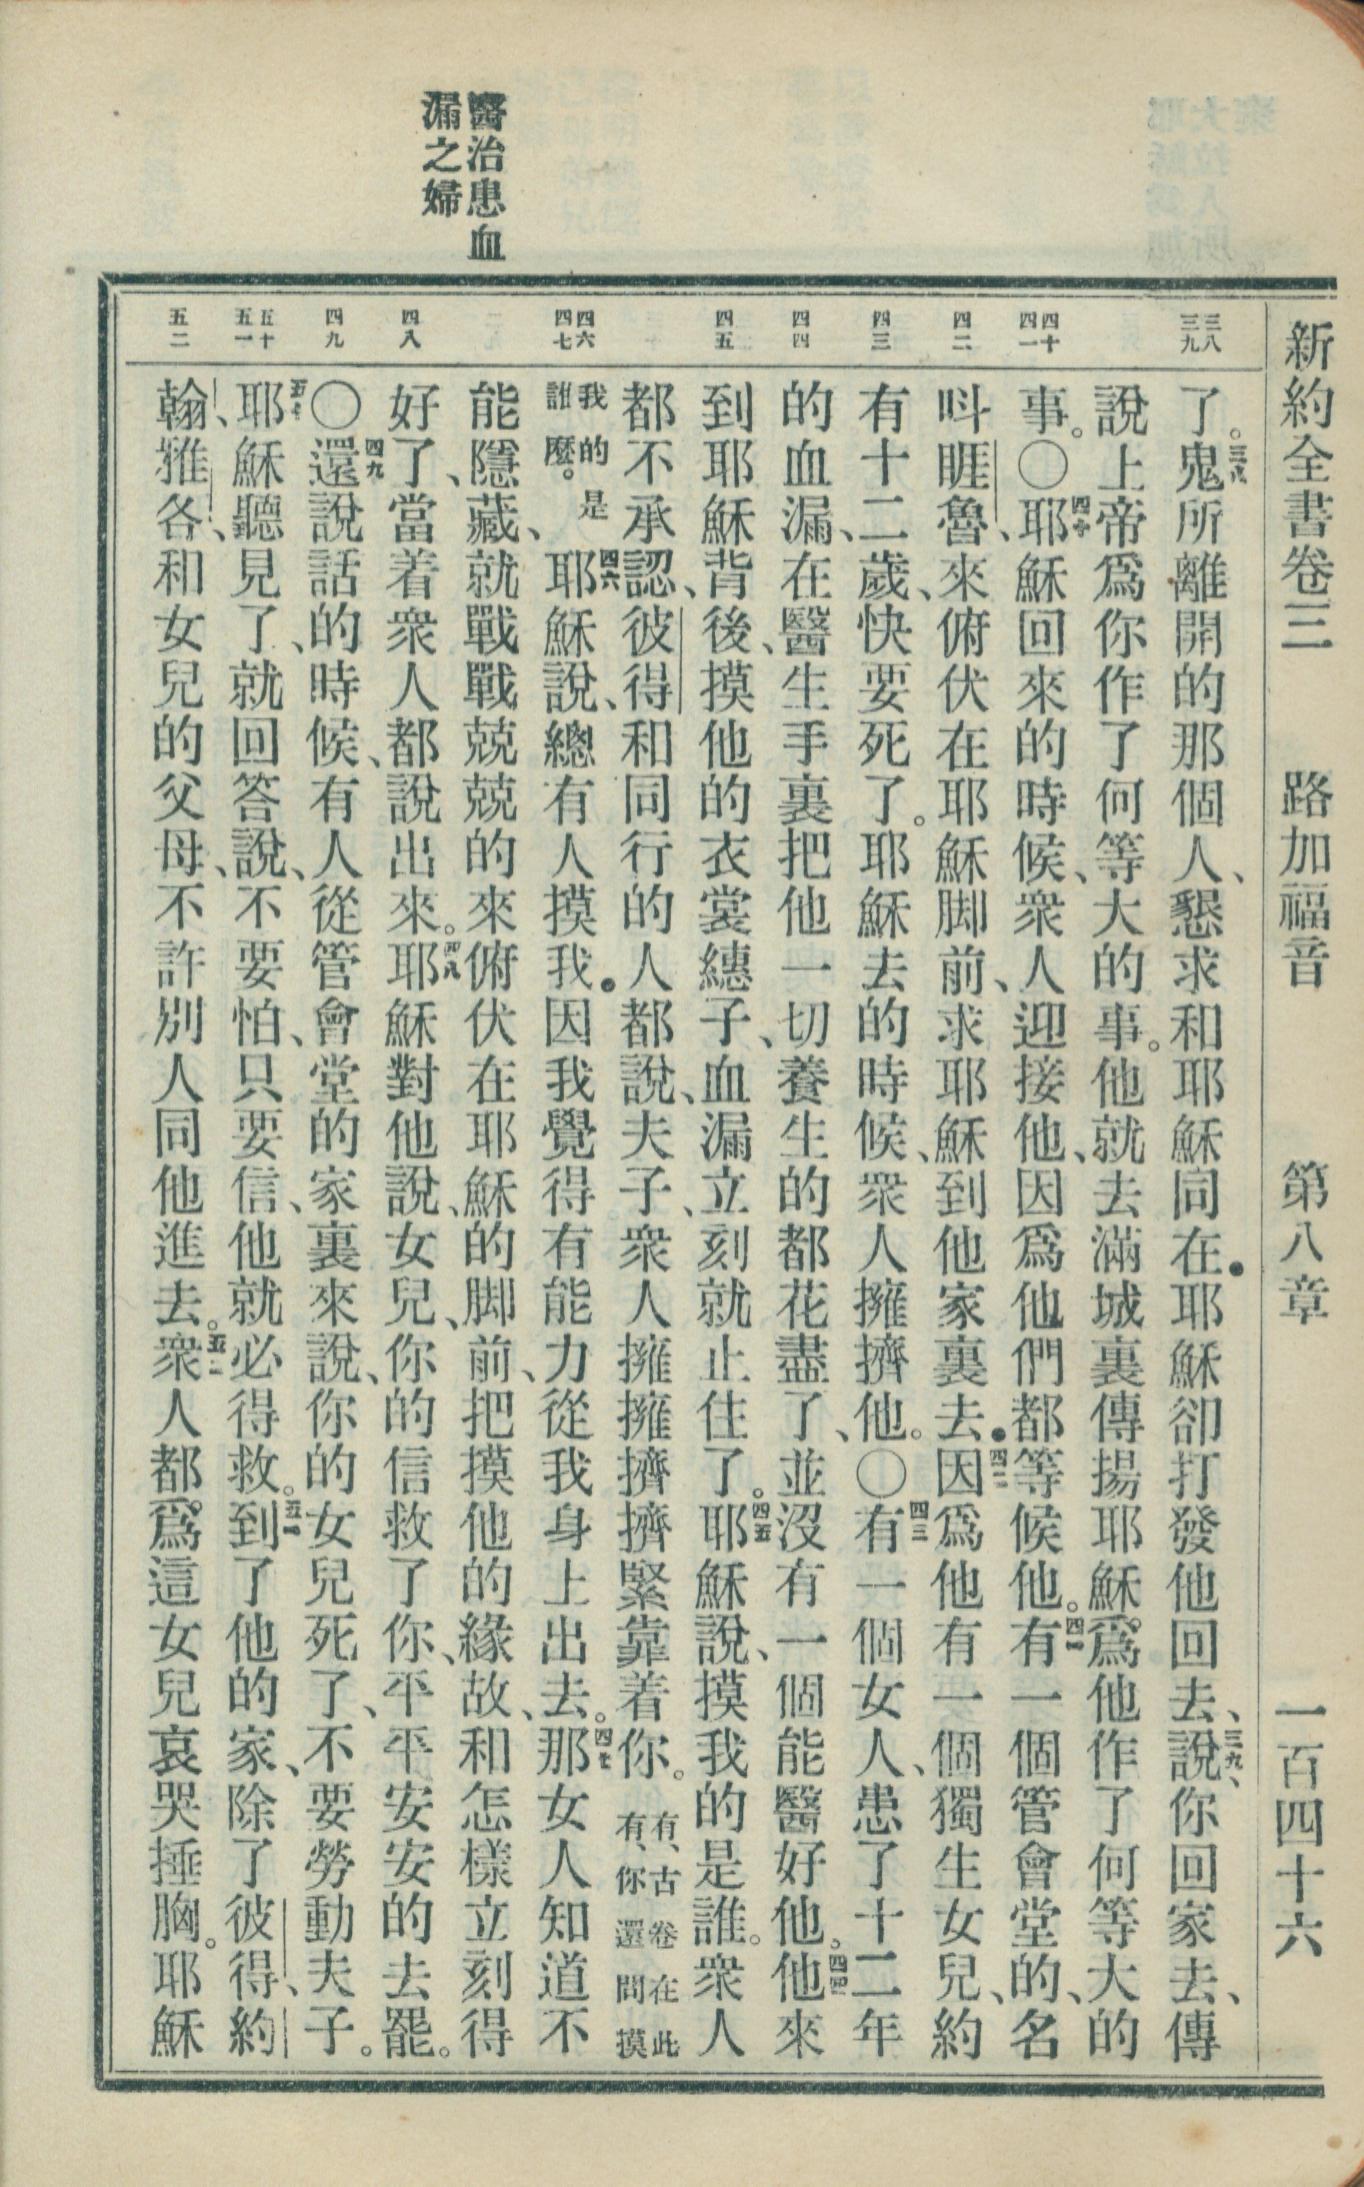 新約全書卷三 路加福音 第八章 一百四十六
醫治患血
漏之婦
三八
三九
四十
四一
四二
四三
四四
四五
四六
四七
四八
四九
五十
五一
五二
了。三八鬼所離開的那個人、懇求和耶穌同在．耶穌卻打發他回去、說三九、你回家去、傳
說上帝爲你作了何等大的事。他就去滿城裏傳揚耶穌爲他作了何等大的
事。〇四十耶穌回來的時候、衆人迎接他、因爲他們都等候他。四一有一個管會堂的、名
呌睚魯、來俯伏在耶穌脚前、求耶穌到他家裏去．四二因爲他有一個獨生女兒、約
有十二歲、快要死了。耶穌去的時候、衆人擁擠他。〇四三有一個女人、患了十二年
的血漏、在醫生手裏、把他一切養生的都花盡了、並沒有一個能醫好他。四四他來
到耶穌背後、摸他的衣裳繐子、血漏立刻就止住了。四五耶穌說、摸我的是誰。衆人
都不承認、彼得和同行的人都說、夫子、衆人擁擁擠擠緊靠着你。有古卷在此有、你還問摸
我的是誰麼。四六耶穌說、總有人摸我．因我覺得有能力從我身上出去。四七那女人知道不
能隱藏、就戰戰兢兢的來俯伏在耶穌的脚前、把摸他的緣故、和怎樣立刻得
好了、當着衆人都說出來。四八耶穌對他說、女兒、你的信救了你、平平安安的去罷。
〇四九還說話的時候、有人從管會堂的家裏來說、你的女兒死了、不要勞動夫子。
五十耶穌聽見了、就回答說、不要怕、只要信、他就必得救。五一到了他的家、除了彼得、約
翰、雅各、和女兒的父母、不許別人同他進去。五二衆人都爲這女兒哀哭捶胸。耶穌